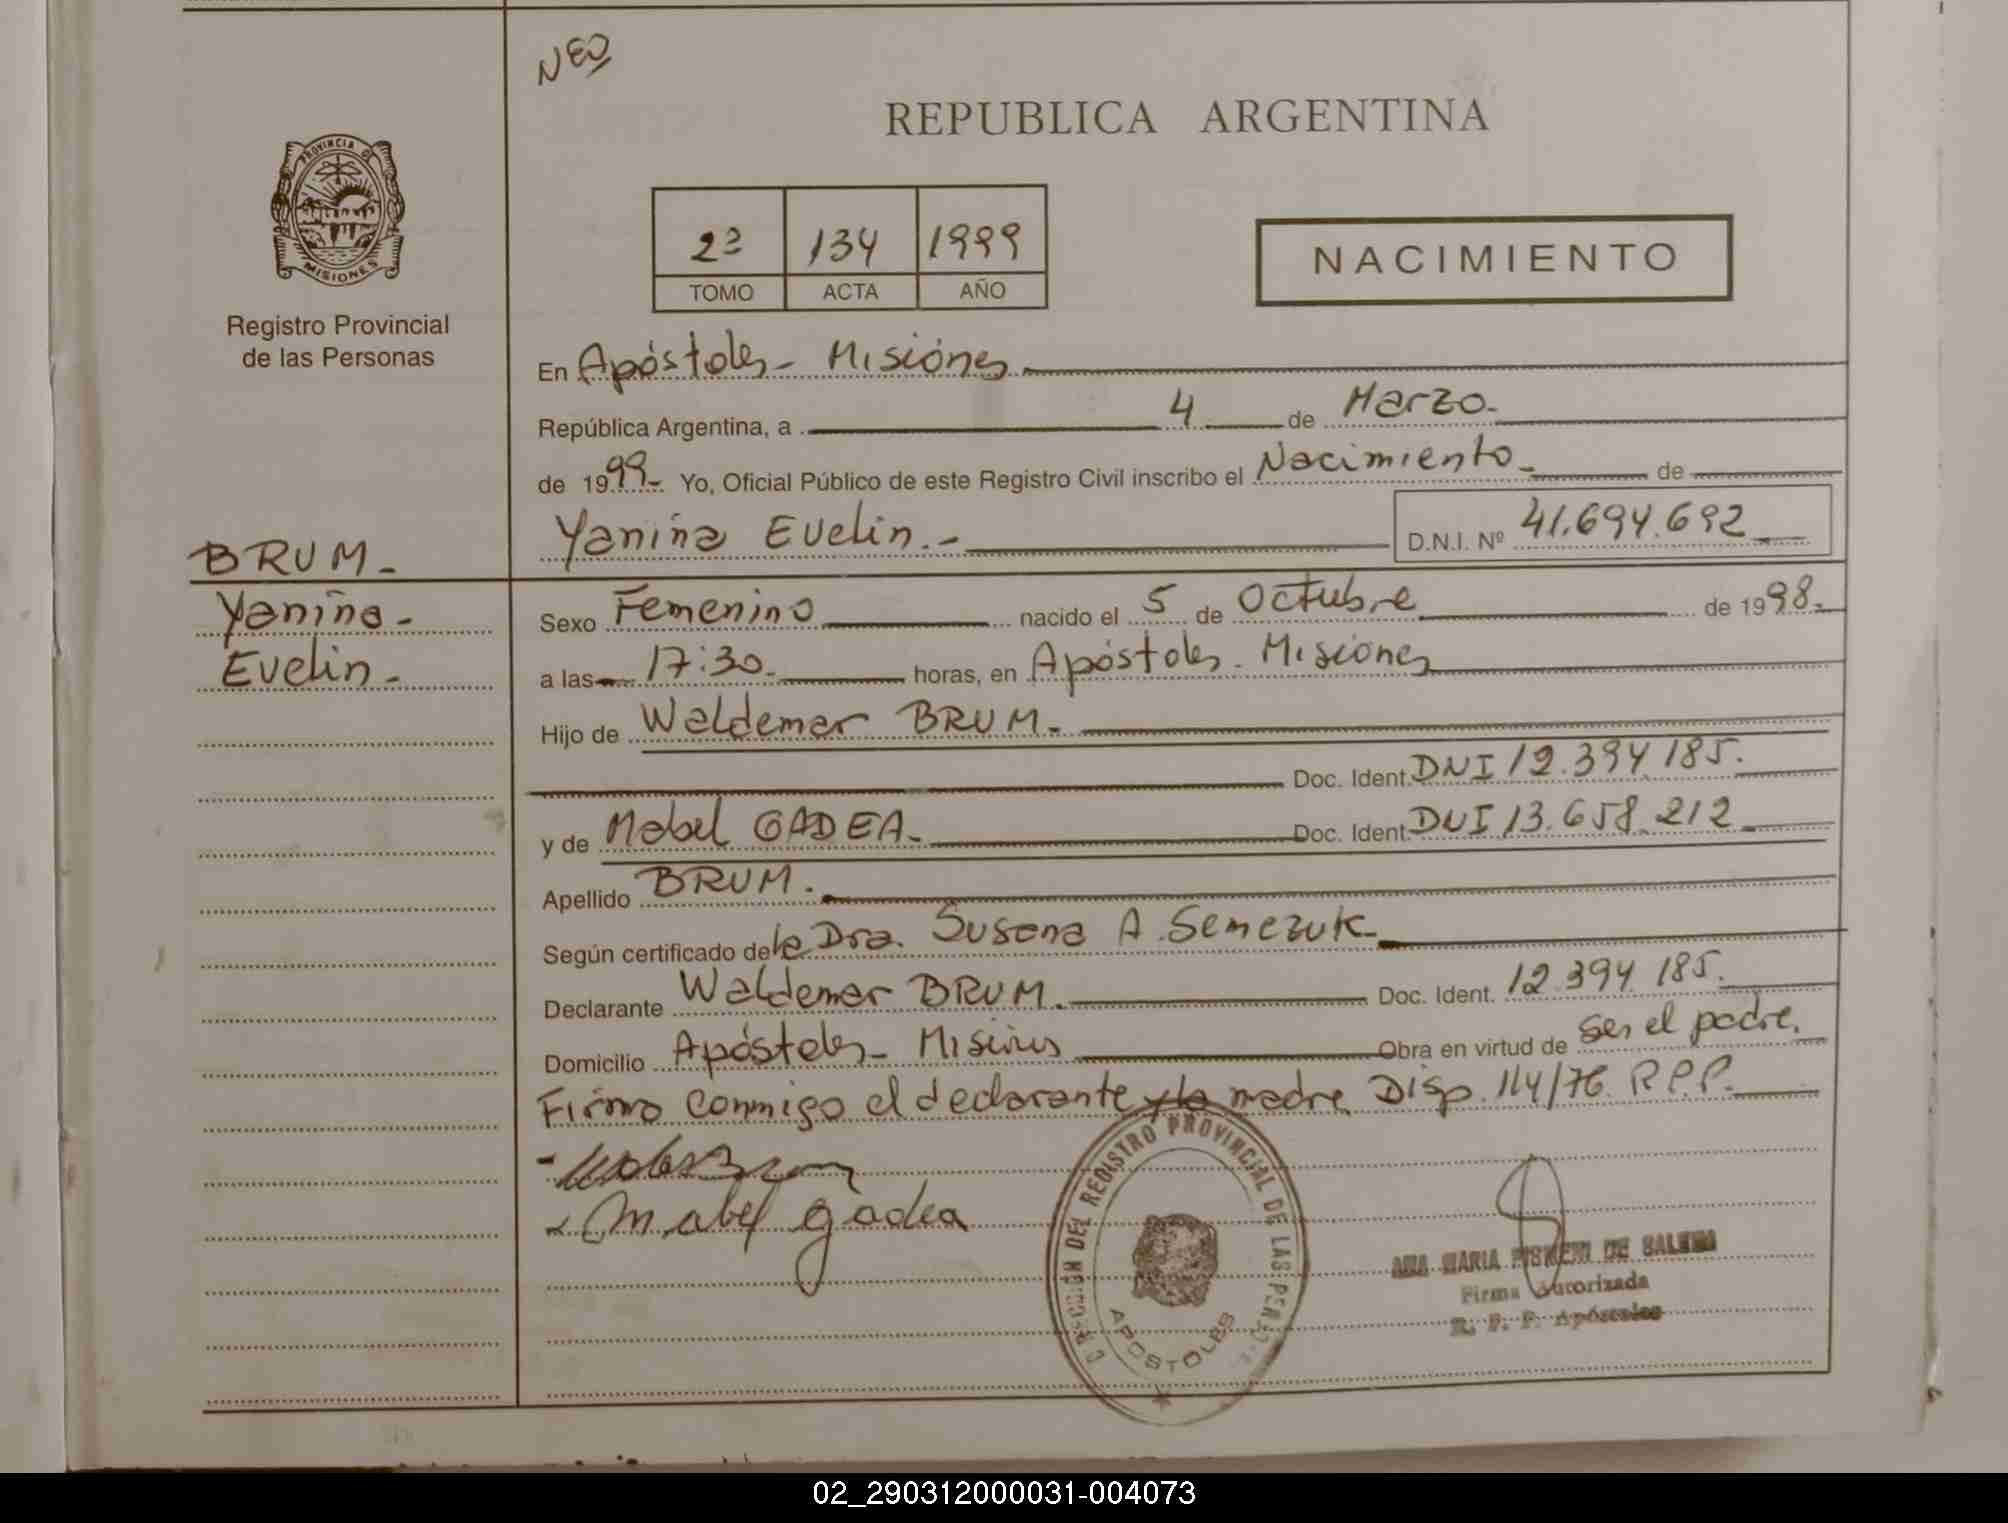 NEO
REPUBLICA ARGENTINA
PROVINCIA DE
MISIONES
Registro Provincial
de las Personas
2º 134 1999
TOMO ACTA AÑO
NACIMIENTO
En Apóstoles - Misiones
República Argentina, a 4 de Marzo.
de 1999- Yo, Oficial Público de este Registro Civil inscribo el Nacimiento - de
Yanina Evelin.- D.N.I. Nº 41.694.692
BRUM -
Yanina -
Evelin -
Sexo Femenino nacido el 5 de Octubre de 1998.
a las 17:30. horas, en Apóstoles - Misiones
Hijo de Waldemar BRUM.
Doc. Ident. DNI 12.394.185.
y de Mabel GADEA. Doc. Ident. DNI 13.658.212
Apellido BRUM.
Según certificado de la Dra. Susana A. Semezuk
Declarante Waldemar BRUM. Doc. Ident. 12.394.185.
Domicilio Apóstoles - Misiones Obra en virtud de ser el padre.
Firma conmigo el declarante y la madre Disp. 114/76 R.P.P.
Mabel gadea
DEL REGISTRO PROVINCIAL DE LAS PER
APOSTOLES
ANA MARIA DE
Firma Autorizada
R. P. P. Apóstoles
02_290312000031-004073